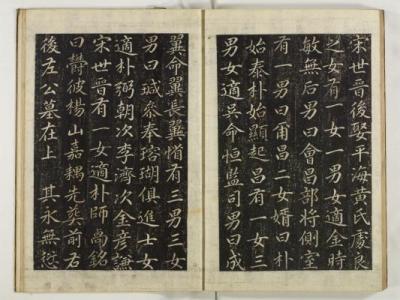 宋世晉後娶平海黃氏處良
之女有一女一男女適金時
敏無后男曰會昌部將側室
有一男曰甫昌二女婿曰朴
始泰朴始顯起昌有一女三
男女適吳命恒監司男曰成
翼命翼長翼惰有三男三女
男曰珹叅奉瑢瑚俱進士女
適朴弼朝次李濟次金彦謙
宋世晉有一女適朴師尙銘
曰欝彼楊山嘉耦先葬前右
後左公墓在上 其永無愆